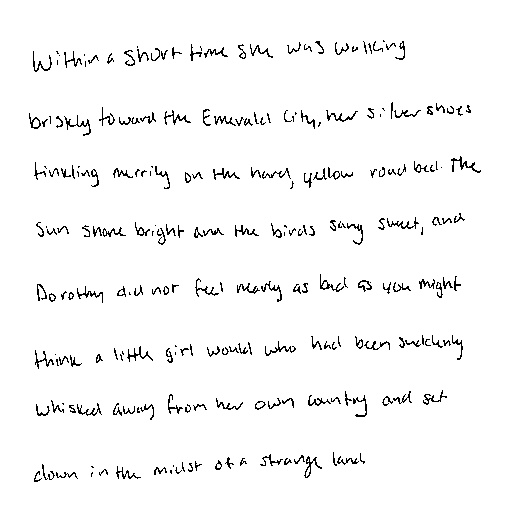 Within a short time she was walking
briskly toward the Emerald City, her silver shoes
tinkling merrily on the hard, yellow road bed. The
sun shone bright and the birds sang sweet, and
Dorothy did not feel nearly as bad as you might
think a little girl would who had been suddenly
whisked away from her own country and set
down in the midst of a strange land